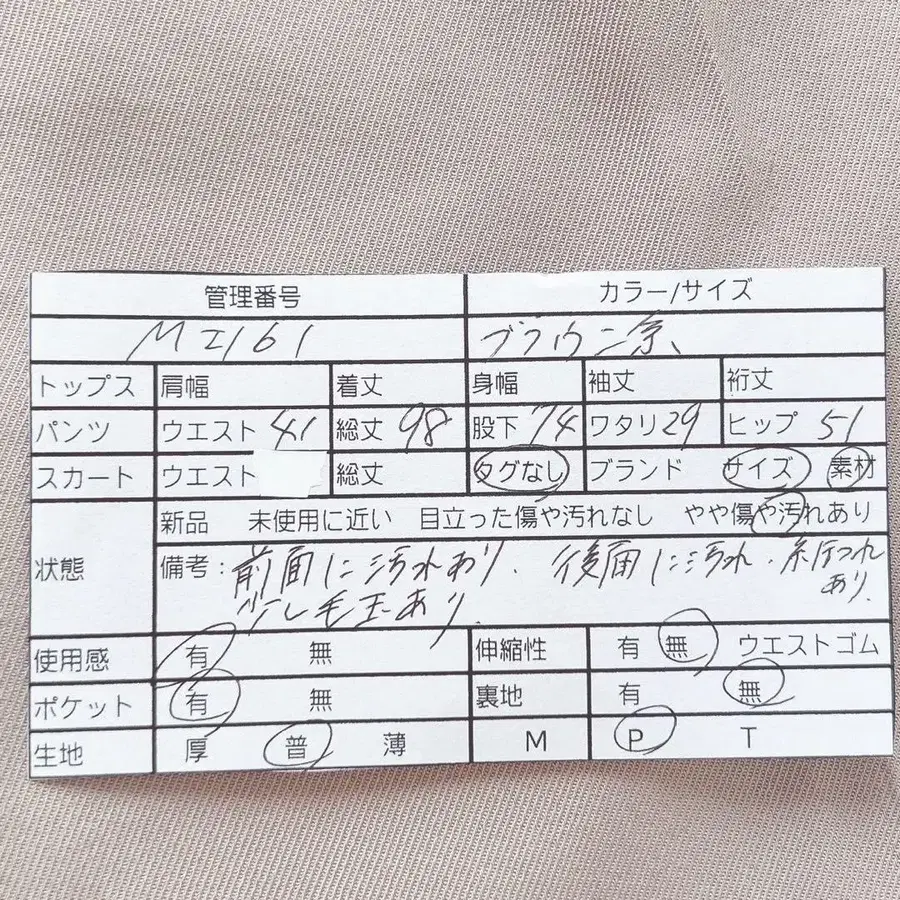 管理番号 カラー/サイズ
MI161 ブラウン系
トップス 肩幅 着丈 身幅 袖丈 裄丈
パンツ ウエスト 41 総丈 98 股下 74 ワタリ 29 ヒップ 51
スカート ウエスト 総丈 タグなし ブランド サイズ 素材
状態 新品 未使用に近い 目立った傷や汚れなし やや傷や汚れあり
備考:前面に汚れあり. 後面に汚れ・糸ほつれ
あり.
少し毛玉あり.
使用感 有 無 伸縮性 有 無 ウエストゴム
ポケット 有 無 裏地 有 無
生地 厚 普 薄 M P T